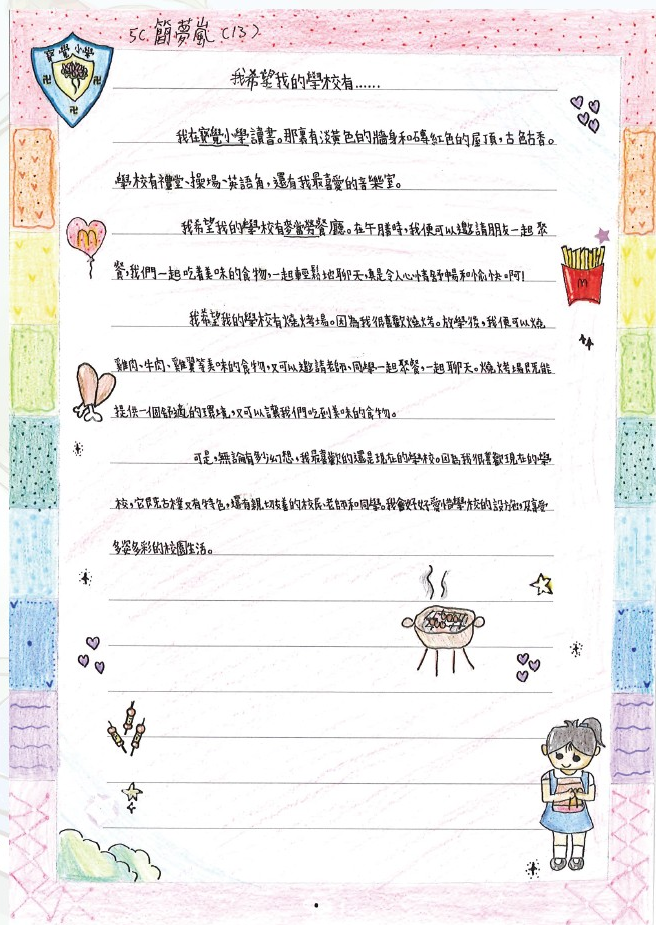 5C 簡夢嵐(13)
寶覺小學
我希望我的學校有……
我在寶覺小學讀書。那裏有淡黃色的牆身和磚紅色的屋頂,古色古香。
學校有禮堂、操場、英語角,還有我最喜愛的音樂室。
我希望我的學校有麥當勞餐廳。在午膳時,我便可以邀請朋友一起聚
餐,我們一起吃着美味的食物,一起輕鬆地聊天,真是令人心情舒暢和愉快啊!
我希望我的學校有燒烤場。因為我很喜歡燒烤。放學後,我便可以燒
雞肉、牛肉、雞翼等美味的食物,又可以邀請老師、同學一起聚餐,一起聊天。燒烤場既能
提供一個舒適的環境,又可以讓我們吃到美味的食物。
可是,無論有多少幻想,我最喜歡的還是現在的學校。因為我很喜歡現在的學
校,它既古樸又有特色,還有親切友善的校長、老師和同學。我會好好愛惜學校的設施,享受
多姿多彩的校園生活。